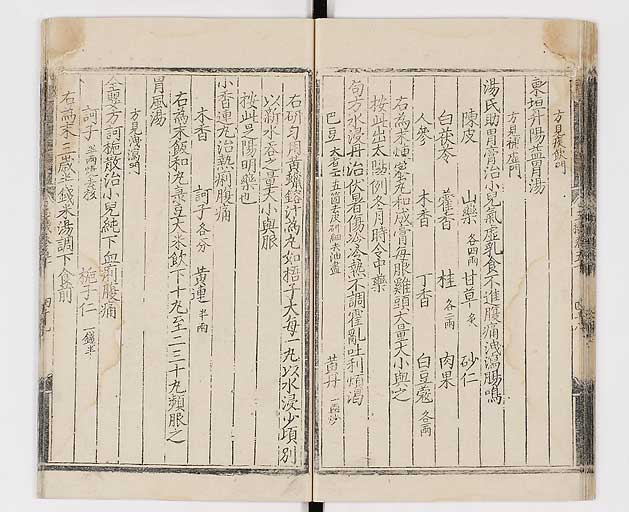 方見痰飲門
東垣升陽益胃湯
方見補虛門
湯氏助胃膏治小兒氣虛乳食不進腹痛洩瀉腸鳴
陳皮 山藥 各四兩 甘草 炙 砂仁
白茯苓 藿香 桂 各二兩 肉果
人參 木香 丁香 白豆蔻 各兩
右爲末煉蜜丸和成膏每服雞頭大量大小與之
按此出太陽例冬月時令中藥
旬方水浸丹治伏暑傷冷冷熱不調霍亂吐利煩渴
巴豆 黃丹
右研勻用黃蠟鎔汁爲丸如梧子大每一丸以水浸少頃別
以新水吞之量大小與服
按此是陽明藥也
小香連丸治熱痢腹痛
木香 訶子 各分 黃連 半兩
右爲末飯和丸菉豆大米飲下十丸至二三十丸頻服之
胃風湯
方見洩瀉門
全嬰方訶梔散治小兒純下血痢腹痛
訶子 梔子仁 一錢半
右爲末三歲半錢米湯調下食前